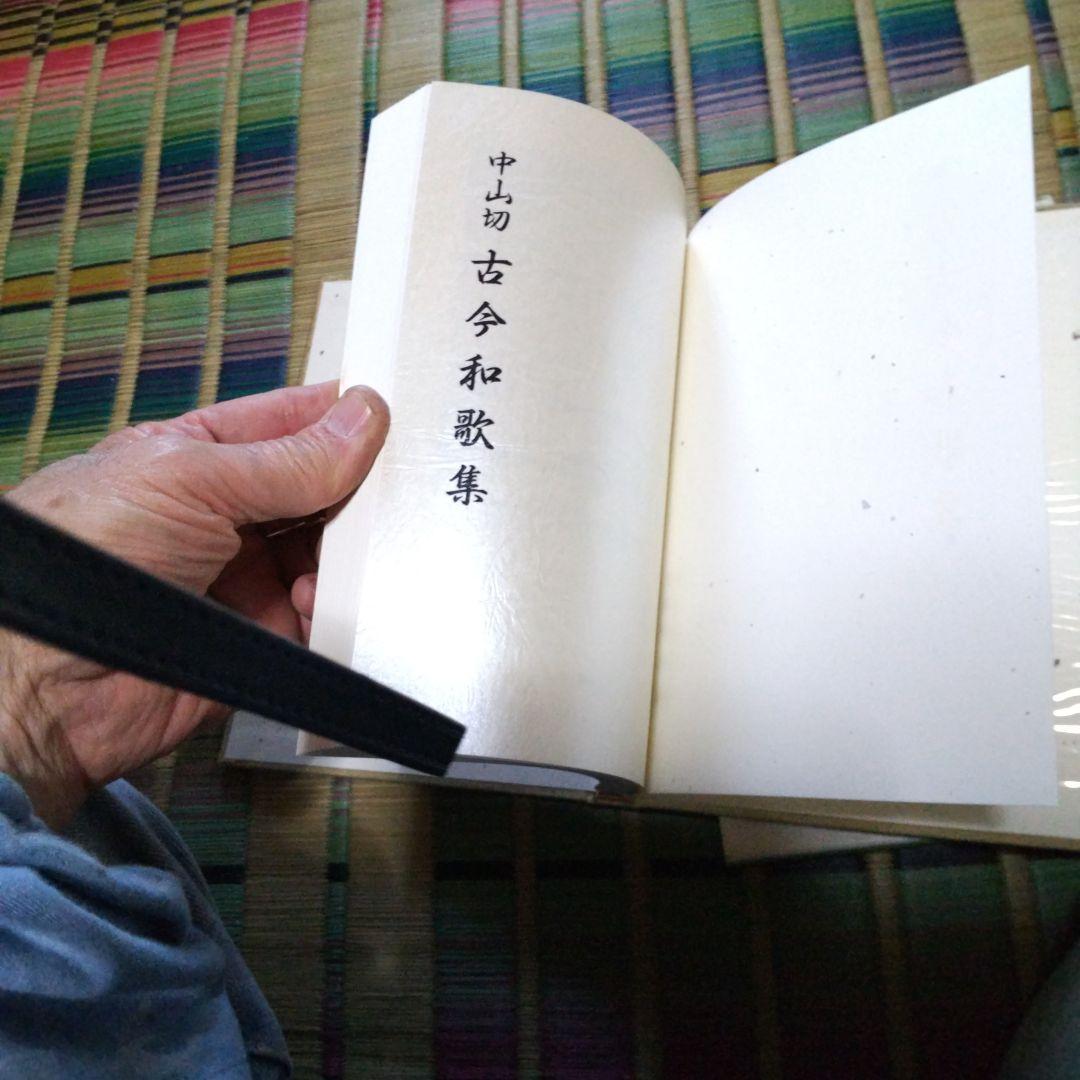 中山切 古今和歌集